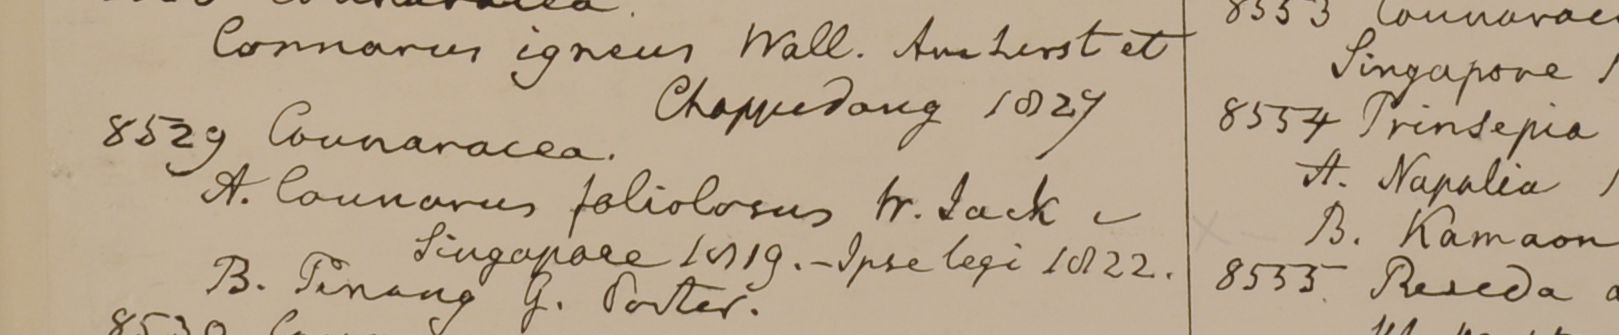 Connaracea.
Connarus igneus Wall. Amherst et
Chappedong 1827
8529 Connaracea.
A. Connarus foliolosus W. Jack
Singapore 1819. - Ipse legi 1822.
B. Pinang G. Porter.
8530
8553
Singapore
8554 Prinsepia
A. Napalia
B. Kamaon
8555 Reseda